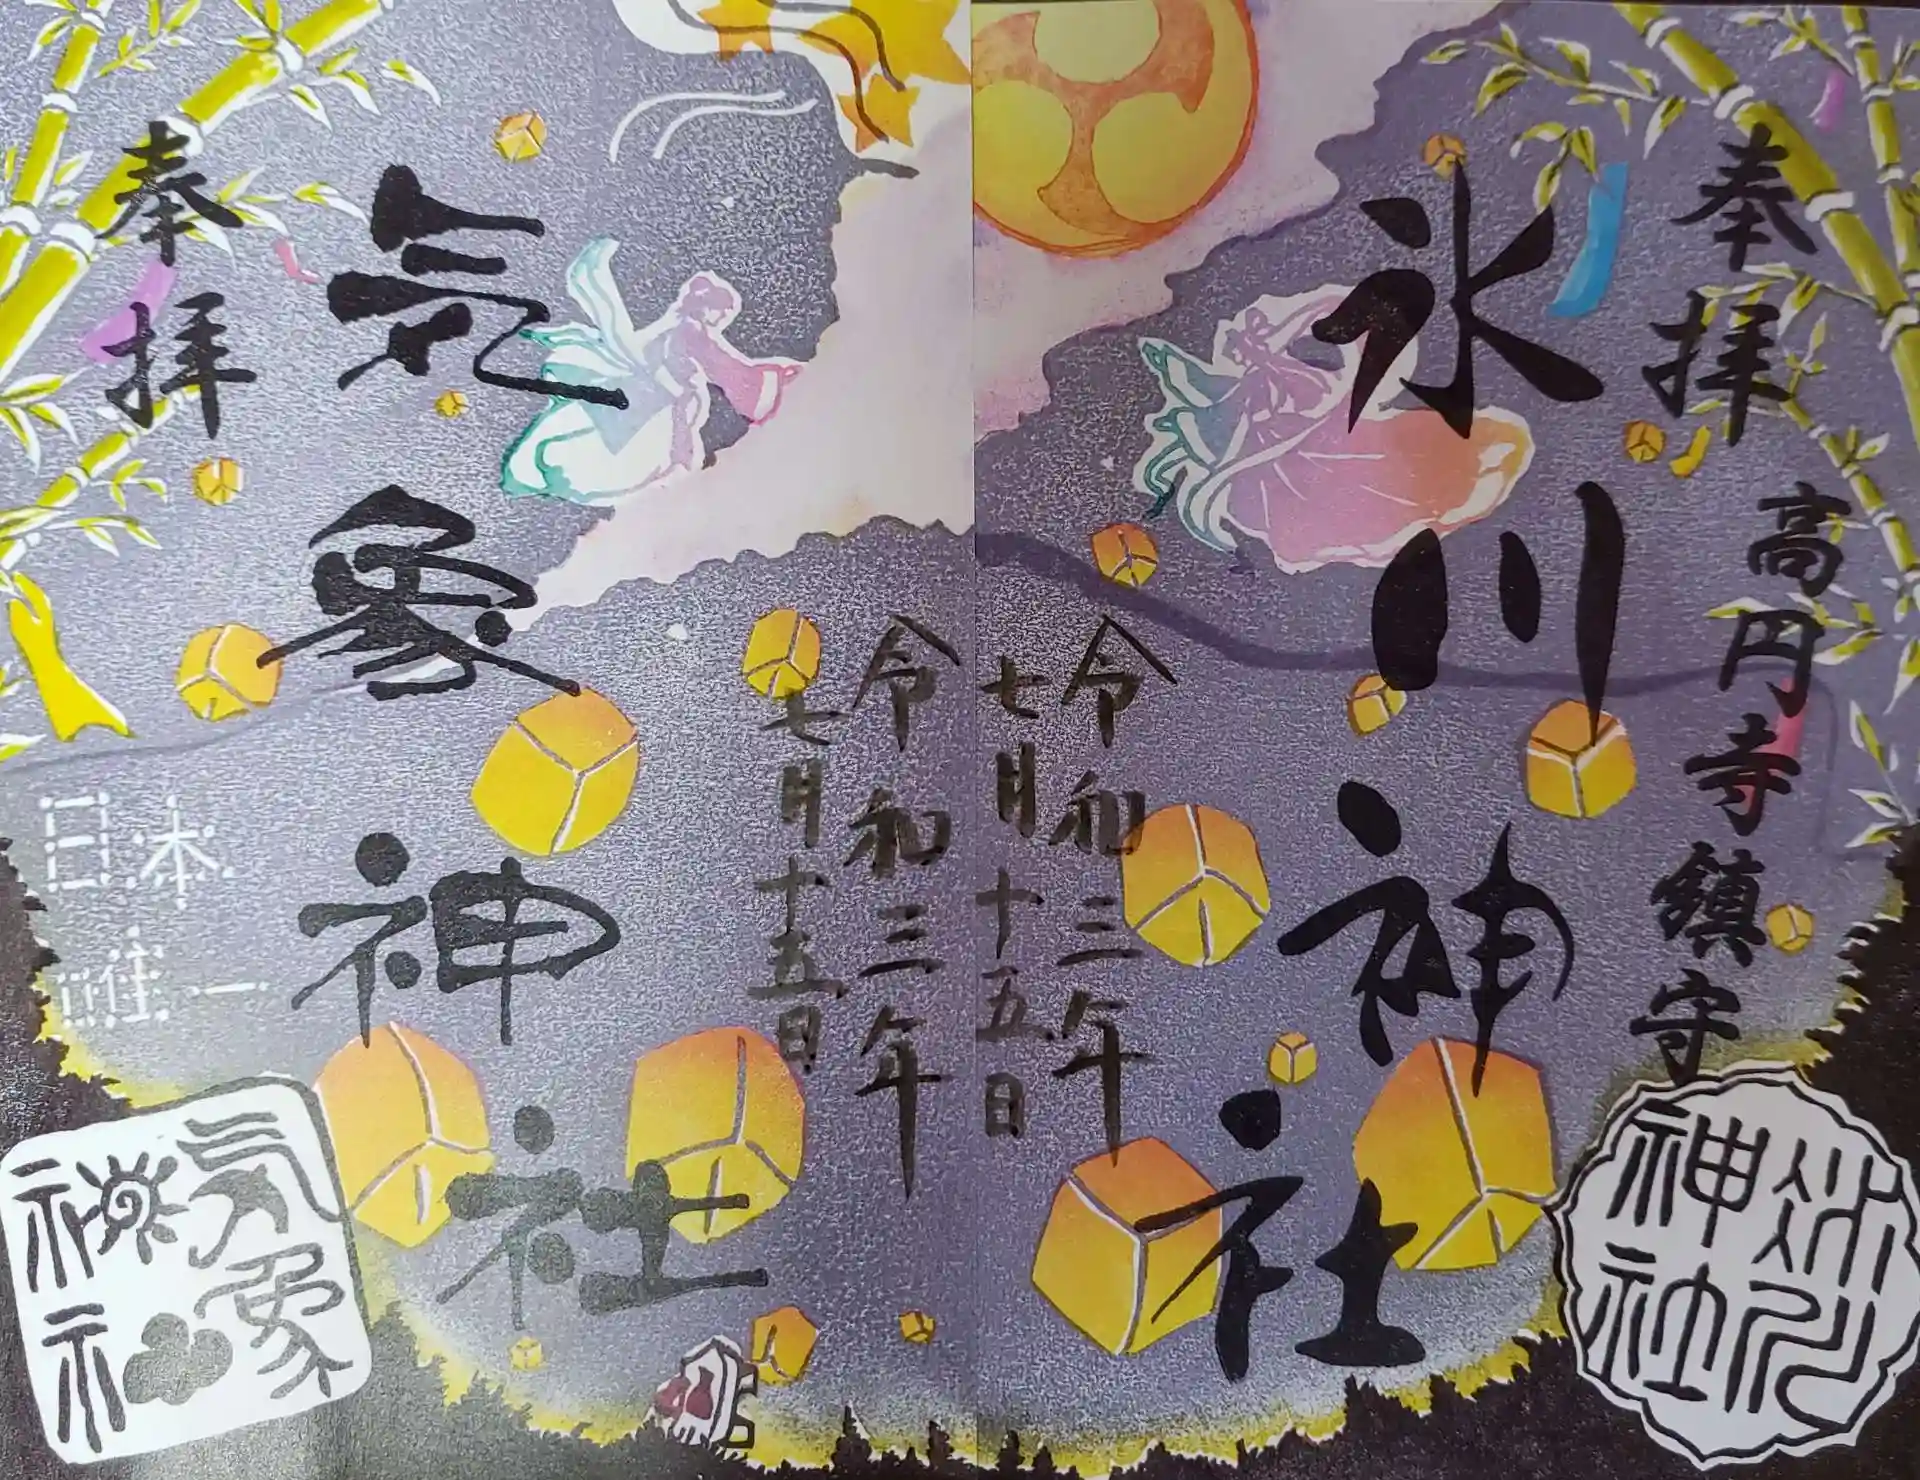 奉拝
高円寺鎮守
氷川神社
令和三年
七月十五日
氷川神社
令和三年
七月十五日
気象神社
奉拝
日本
唯一
気象神社